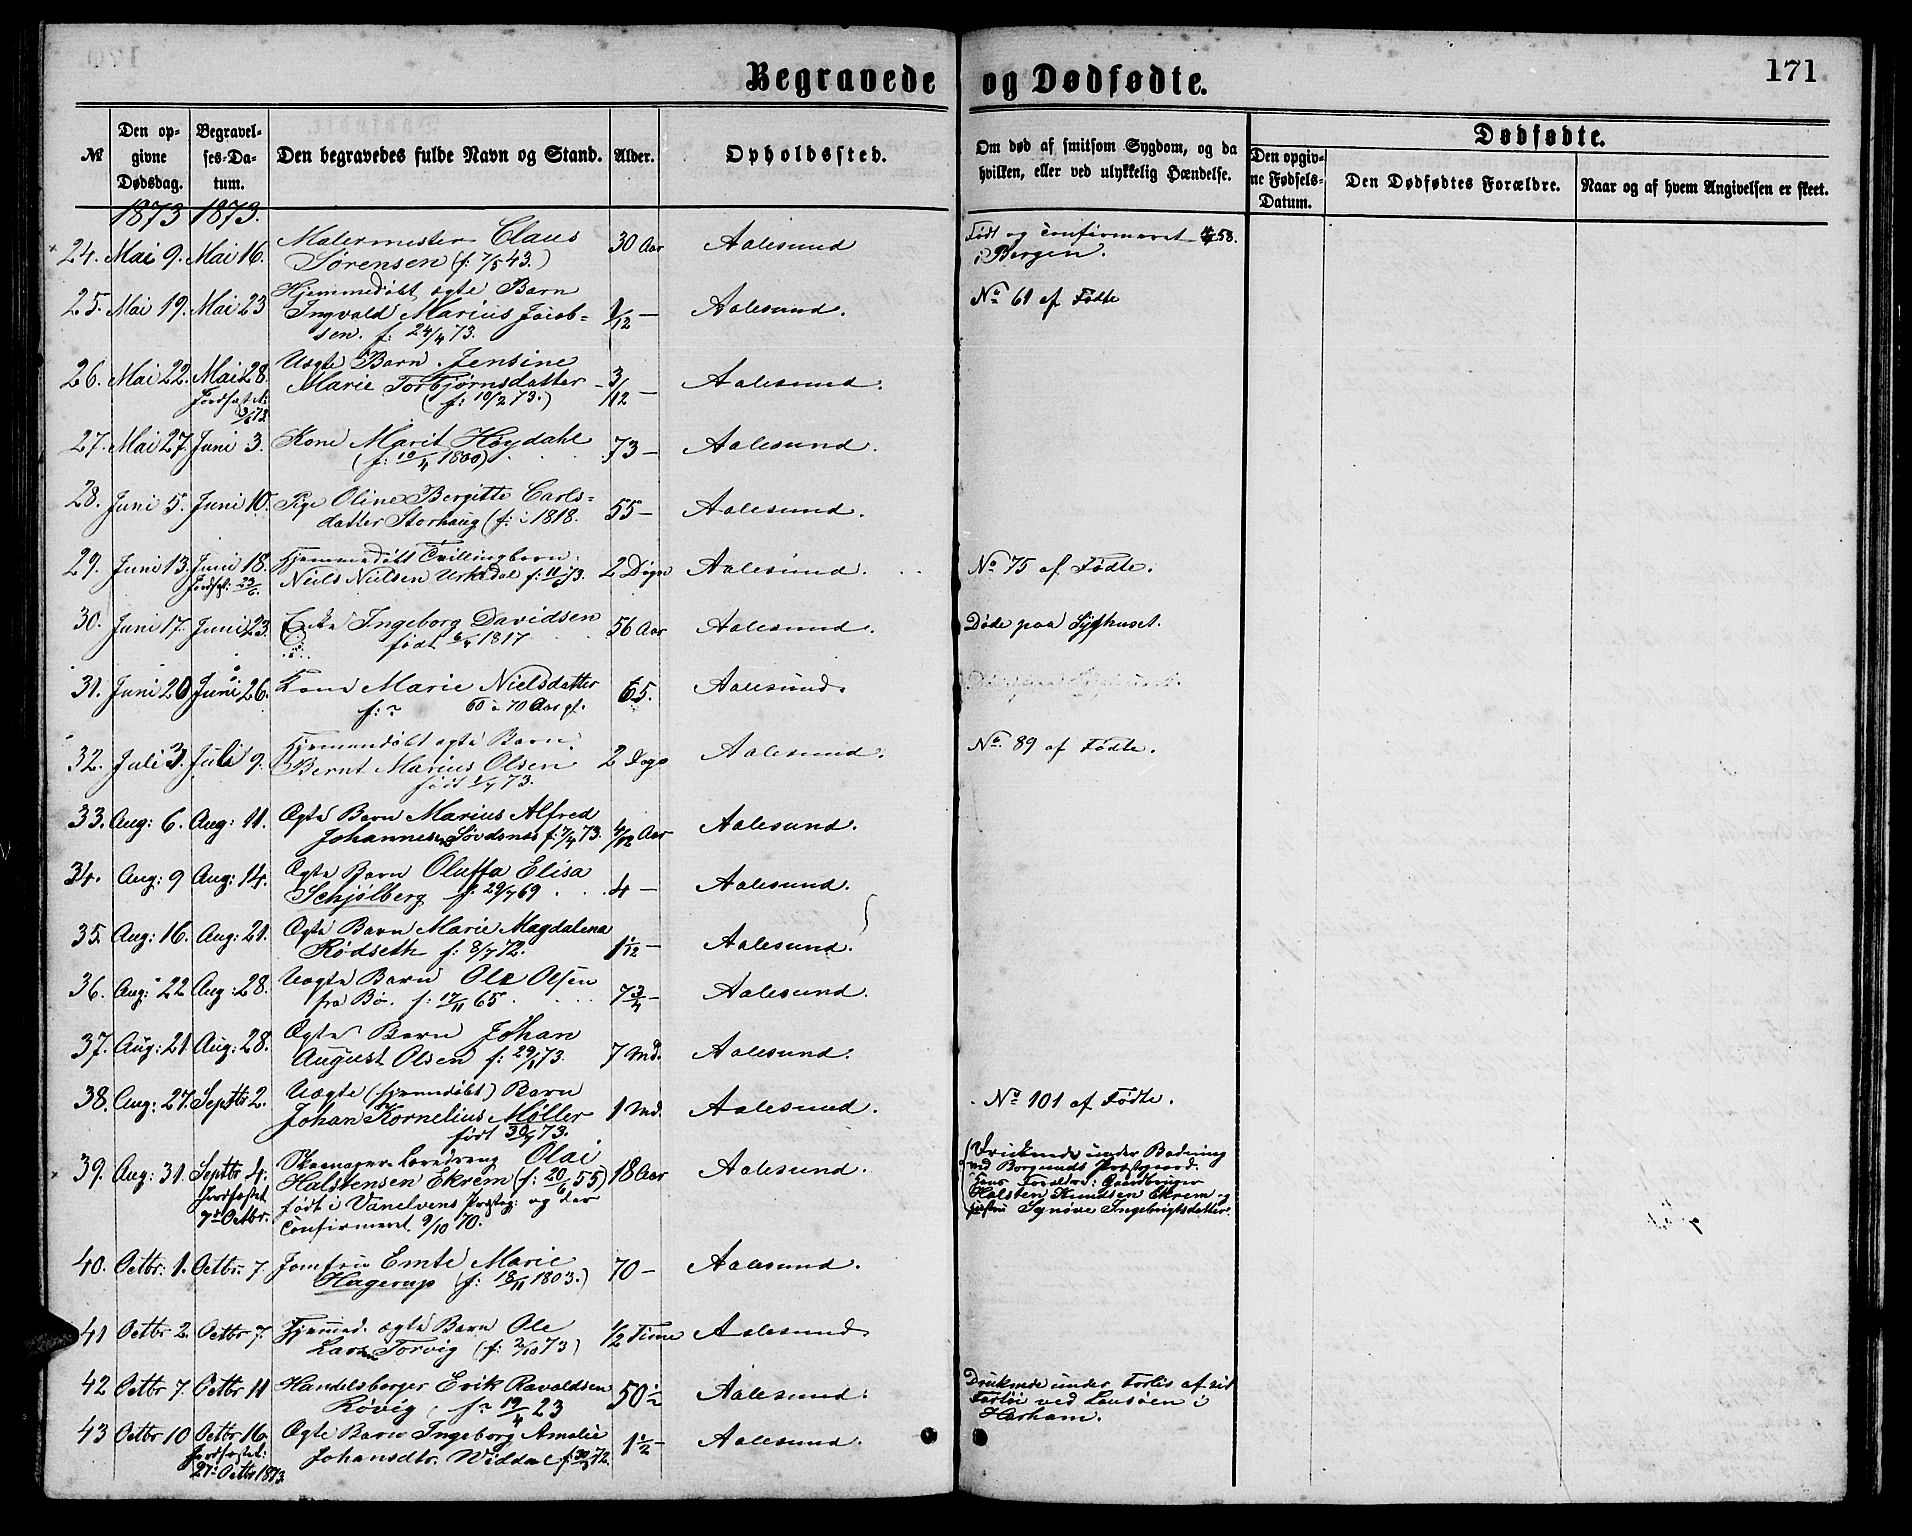 Begravede og Dødfødte.
171
№
Den opgivne Dødsdag.
Begravelses-Datum.
Den begravedes fulde Navn og Stand.
Alder.
Opholdssted.
Om død af smitsom Sygdom, og da hvilken, eller ved ulykkelig Hændelse.
Dødfødte.
Den opgivne Fødsels-Datum.
Den Dødfødtes Forældre.
Naar og af hvem Angivelsen er skeet.
1873 1873.
24. Mai 9. Mai 16. Malermester Claus Sørensen (f: 7/5 43.) 30 Aar Aalesund Født og confirmeret 58. i Bergen.
25. Mai 19. Mai 23 Hjemmedøbt ægte Barn Ingvald Marius Jacobsen. f: 24/4 73. 1/12 — Aalesund. No 61 af Fødte
26. Mai 22. Mai 28. Uægte Barn Jensine Marie Torbjørnsdatter (f: 10/2 73.) 3/12 — Aalesund.
27. Mai 27. Juni 3. Kone Marit Høydahl (f: 10/4 1800) 73 — Aalesund.
28. Juni 5. Juni 10. Pige Oline Bergitte Carlsdatter Storhaug (f: i 1818. 55 — Aalesund.
29. Juni 13. Juni 18. Jordfst: 23/6. Hjemmedøbt Tvillingbarn Niels Nielsen Urkedal f: 11/6 73. 2 Døgn Aalesund. No 75 af Fødte.
30. Juni 17. Juni 23. Enke Ingeborg Davidsen født 1817 56 Aar Aalesund. Døde paa Sygehuset.
31. Juni 20 Juni 26. Kone Marie Nielsdatter f: ? 60 à 70 Aar gl. 65. Aalesund.
32. Juli 3. Juli 9. Hjemmedøbt ægte Barn Bernt Marius Olsen født 1/7 73. 2 Døgn Aalesund. No. 89 af Fødte.
33. Aug: 6. Aug: 11. Ægte Barn Marius Alfred Johannesen Søvdsnæs f: 7/4 73. 4/12 Aar Aalesund.
34. Aug: 9 Aug: 14. Ægte Barn Oluffa Elisa Schjølberg f. 29/7 69 4 — Aalesund.
35. Aug: 16. Aug: 21. Ægte Barn Marie Magdalena Rødseth f: 8/7 72. 1 1/12 — Aalesund.
36. Aug: 22 Aug: 28. Uægte Barn Ole Olsen fra Bø. f: 17/11 65 7 3/4 — Aalesund.
37. Aug: 21 Aug: 28. Ægte Barn Johan August Olsen f: 29/1 73. 7 Md. Aalesund.
38. Aug: 27. Septbr 2. Uægte (hjemmedøbt) Barn Johan Kornelius Møller født 30/7 73. 1 Md. Aalesund. No 101 af Fødte.
39. Aug: 31. Septbr 4. Jordfæstet 7de Octbr. Skomager Læredreng Olai Halstensen Ekrem (f: 20/6 55) født i Vanelvens Præstegj: og der Confirmeret 9/10 70. 18 Aar Aalesund. Druknede under Badning ved Borgunds Præstegaard. Hans Forældre: Gaardbruger Halsten Knudsen Ekrem og Hustru Synøve Ingebrigtsdatter.
40. Octbr: 1. Octbr: 7. Jomfru Emte Marie Hagerup (f: 18/11 1803.) 70 — Aalesund.
41 Octbr 2. Octbr 7. Hjemmed. ægte Barn Ole Larsen Torvig (f: 2/10 73) 1/2 Time Aalesund
42 Octbr 7. Octbr 11 Handelsborger Erik Ravaldsen Røvig, f: 19/4 23 50 1/2 Aalesund. Druknede under Forlis af sit Fartøi ved Lausøen i Harham.
43 Octbr 10 Octbr 16. Jordfæstet: 27de Octbr 1873. Ægte Barn Ingeborg Amalie Johansdtr. Widdal f: 72. 1 1/2 — Aalesund.